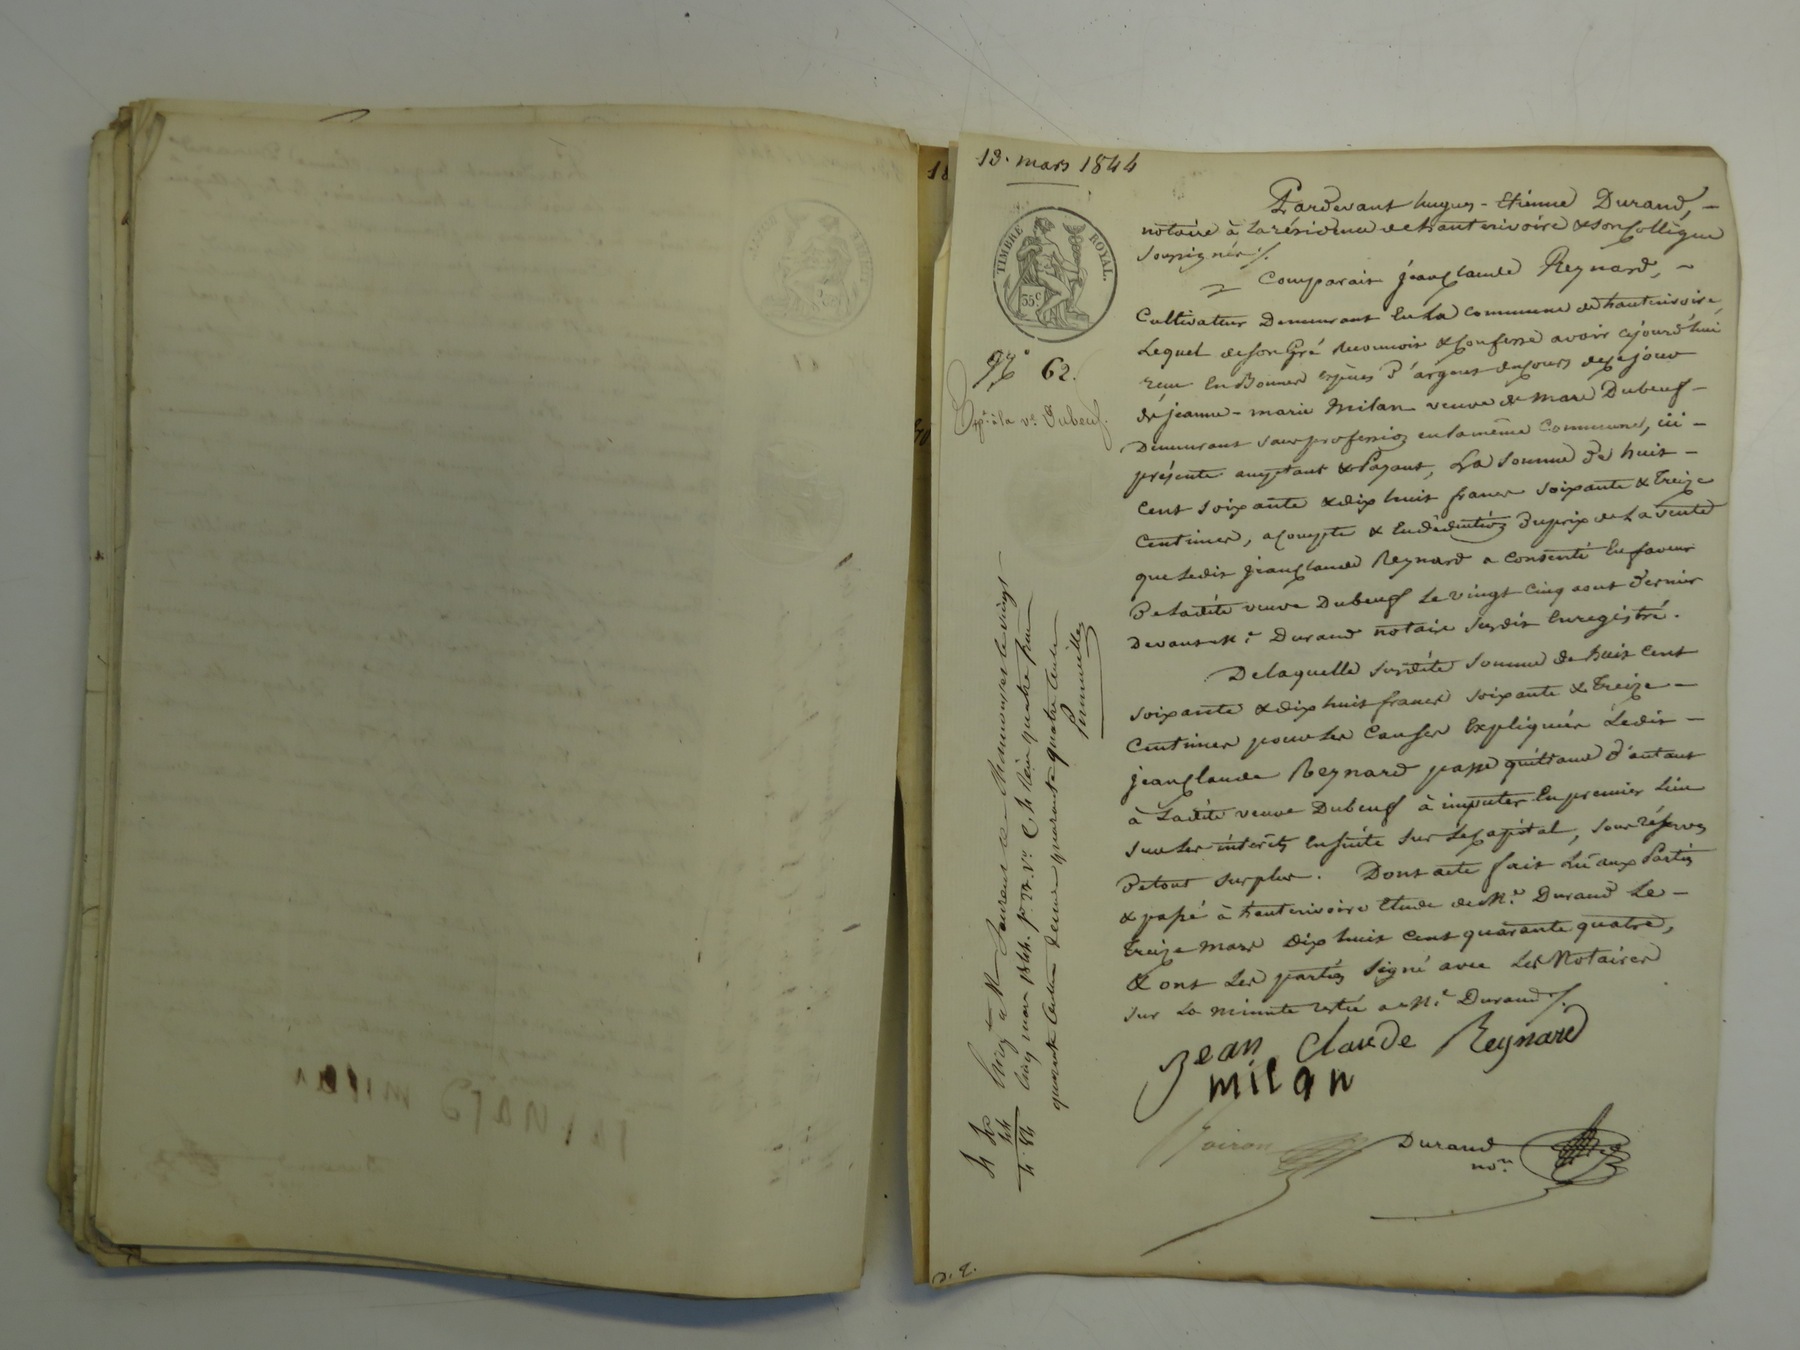 13. mars 1844
TIMBRE ROYAL.
35c
N° 62.
Exp. à la ve Dubeuf.
Pardevant hugues-Etienne Durand, -
notaire à la résidence de hauterivoire & son collègue
soussignés /.
Comparait jean claude Reynard, -
Cultivateur Demeurant En La commune de hauterivoire
Lequel de son Gré Reconnoit & confesse avoir cejourd'hui
reçu En Bonnes espèces D'argent du cours de ce jour
de jeanne-marie Milan veuve de Marc Dubeuf -
Demeurant sans profession en la même Commune, ici -
présente acceptant & Payant, La Somme De huit -
Cent soixante & dix huit francs soixante & Treize
Centimes, acompte & En déduction Du prix de La vente
que Ledit jean claude Reynard a consenti En faveur
De Ladite veuve Dubeuf Le vingt cinq aout Dernier
Devant Me Durand notaire susdit Enregistré.
De laquelle susdite somme de Huit Cent
soixante & dix huit francs soixante & Treize -
Centimes pour Les Causes Expliquées Ledit -
jean claude Reynard passe quittance D'autant
à Ladite veuve Dubeuf à imputer En premier Lieu
sur Les intérêts Ensuite sur Le capital, sous réserves
De tout surplus. Dont acte fait Lu aux Parties
& passé à hauterivoire Etude de Me Durand Le -
Treize Mars Dix huit cent quarante quatre,
& ont Les parties signé avec Les Notaires
sur La minute restée à Me Durand /.
Jean Claude Reynard
milan
Durand
nore
Enregt à St Laurent de Chamousset le vingt
cinq mars 1844. fo 27. vo C, 4. Reçu quatre francs
quarante centimes decime quarante quatre centimes
4 40
44
4. 84